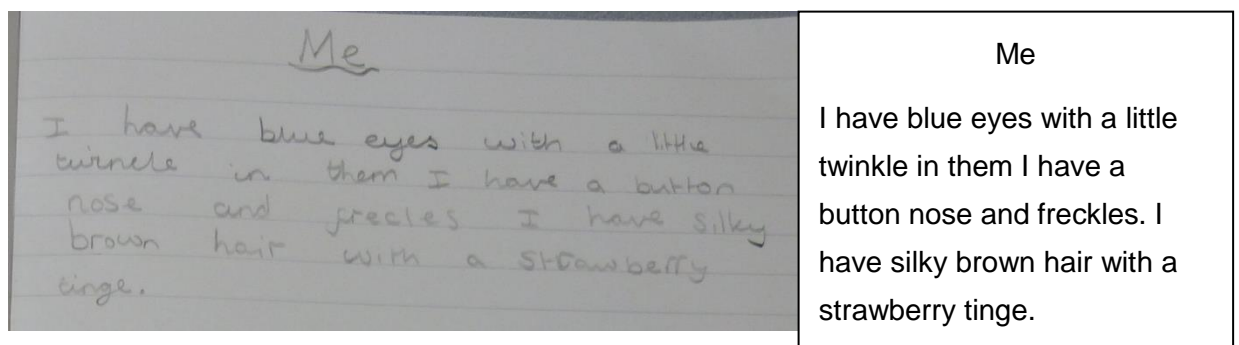 Me
I have blue eyes with a little
twincle in them I have a button
nose and frecles I have silky
brown hair with a strawberry
tinge.
Me
I have blue eyes with a little
twinkle in them I have a
button nose and freckles. I
have silky brown hair with a
strawberry tinge.